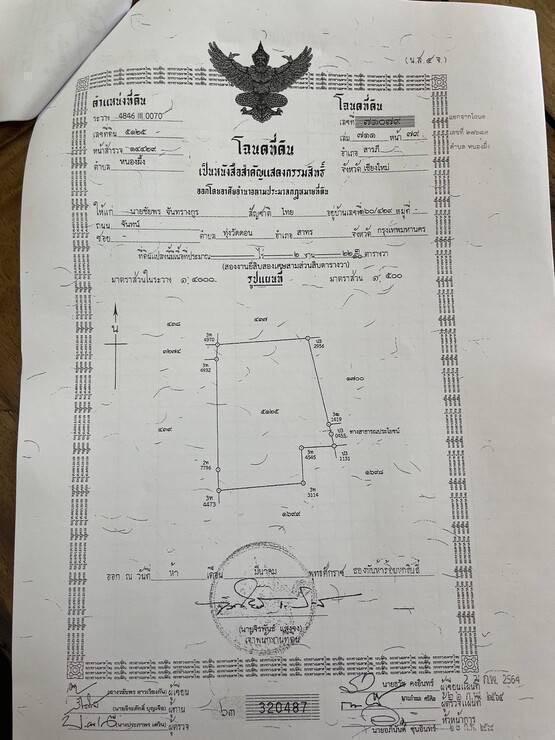 (น.ส.๔ จ.)
ตำแหน่งที่ดิน
ระวาง 4846 III 0070
เลขที่ดิน ๕๑๒๕
หน้าสำรวจ ๑๔๔๒๙
ตำบล หนองผึ้ง
โฉนดที่ดิน
เลขที่ ๗๑๐๗๙
เล่ม ๗๑๑ หน้า ๗๙
อำเภอ สารภี
จังหวัด เชียงใหม่
แยกจากโฉนด
ตำบล หนองผึ้ง
โฉนดที่ดิน
เป็นหนังสือสำคัญแสดงกรรมสิทธิ์
ออกโดยอาศัยอำนาจตามประมวลกฎหมายที่ดิน
ให้แก่ นายชัยพร จันทรางกูร สัญชาติ ไทย อยู่บ้านเลขที่ ๒๖๐/๔๒๙ หมู่ที่ -
ถนน จันทน์
ซอย - ตำบล ทุ่งวัดดอน อำเภอ สาทร จังหวัด กรุงเทพมหานคร
ที่ดินแปลงนี้มีเนื้อที่ประมาณ - ไร่ ๒ งาน ตารางวา
(สองงานยี่สิบสองเศษสามส่วนสิบตารางวา)
มาตราส่วนในระวาง ๑:๔๐๐๐ รูปแผนที่ มาตราส่วน ๑:๕๐๐
น
๔๓๘
๔๓๗
๓๒๗๔
๔๓๙
๕๑๒๕
๑๗๐๐
ทางสาธารณประโยชน์
๑๖๙๘
๑๖๙๙
3ท 4970
3ท 4932
ป3 2956
1619
0455
ป3 1131
3ท 4545
3ท 3114
7796
3ท 4473
ออก ณ วันที่ ห้า เดือน มีนาคม พุทธศักราช สองพันห้าร้อยหกสิบสี่
(นายจิรพันธ์ แสงจง)
เจ้าพนักงานที่ดิน
ผู้เขียน
ผู้ทาน
ผู้ตรวจ
320487
ก.พ. 2564
ผู้เขียนแผนที่
ผู้ตรวจแผนที่
หัวหน้าการ